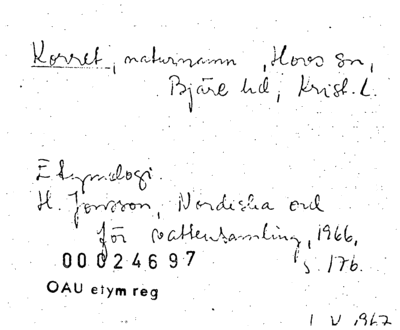 Korret, naturnamn, Hovs sn,
Bjäre hd, Krist. L.
Etymologi.
H. Jonsson, Nordiska ord
för vattensamling, 1966,
s. 176.
00024697
OAU etym reg
1 V 1967